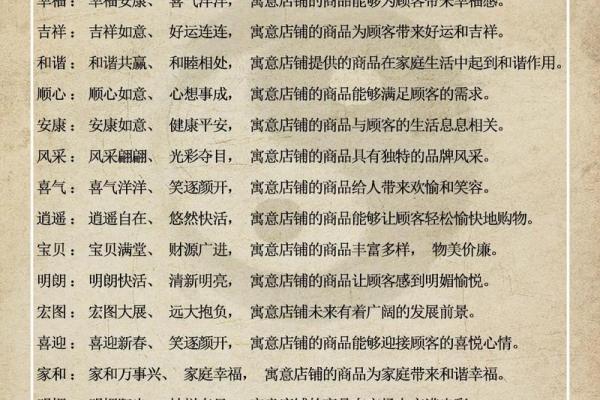 幸福：幸福安康、喜气洋洋，寓意店铺的商品能够为顾客带来幸福感。
吉祥：吉祥如意、好运连连，寓意店铺的商品为顾客带来好运和吉祥。
和谐：和谐共赢、和睦相处，寓意店铺提供的商品在家庭生活中起到和谐作用。
顺心：顺心如意、心想事成，寓意店铺的商品能够满足顾客的需求。
安康：安康如意、健康平安，寓意店铺的商品与顾客的生活息息相关。
风采：风采翩翩、光彩夺目，寓意店铺的商品具有独特的品牌风采。
喜气：喜气洋洋、笑逐颜开，寓意店铺的商品给人带来欢愉和笑容。
逍遥：逍遥自在、悠然快活，寓意店铺的商品能够让顾客轻松愉快地购物。
宝贝：宝贝满堂、财源广进，寓意店铺的商品丰富多样，物美价廉。
明朗：明朗快活、清新明亮，寓意店铺的商品让顾客感到明媚愉悦。
宏图：宏图大展、远大抱负，寓意店铺未来有着广阔的发展前景。
喜迎：喜迎新春、笑逐颜开，寓意店铺的商品能够迎接顾客的喜悦心情。
家和：家和万事兴、家庭幸福，寓意店铺的商品为家庭带来和谐幸福。